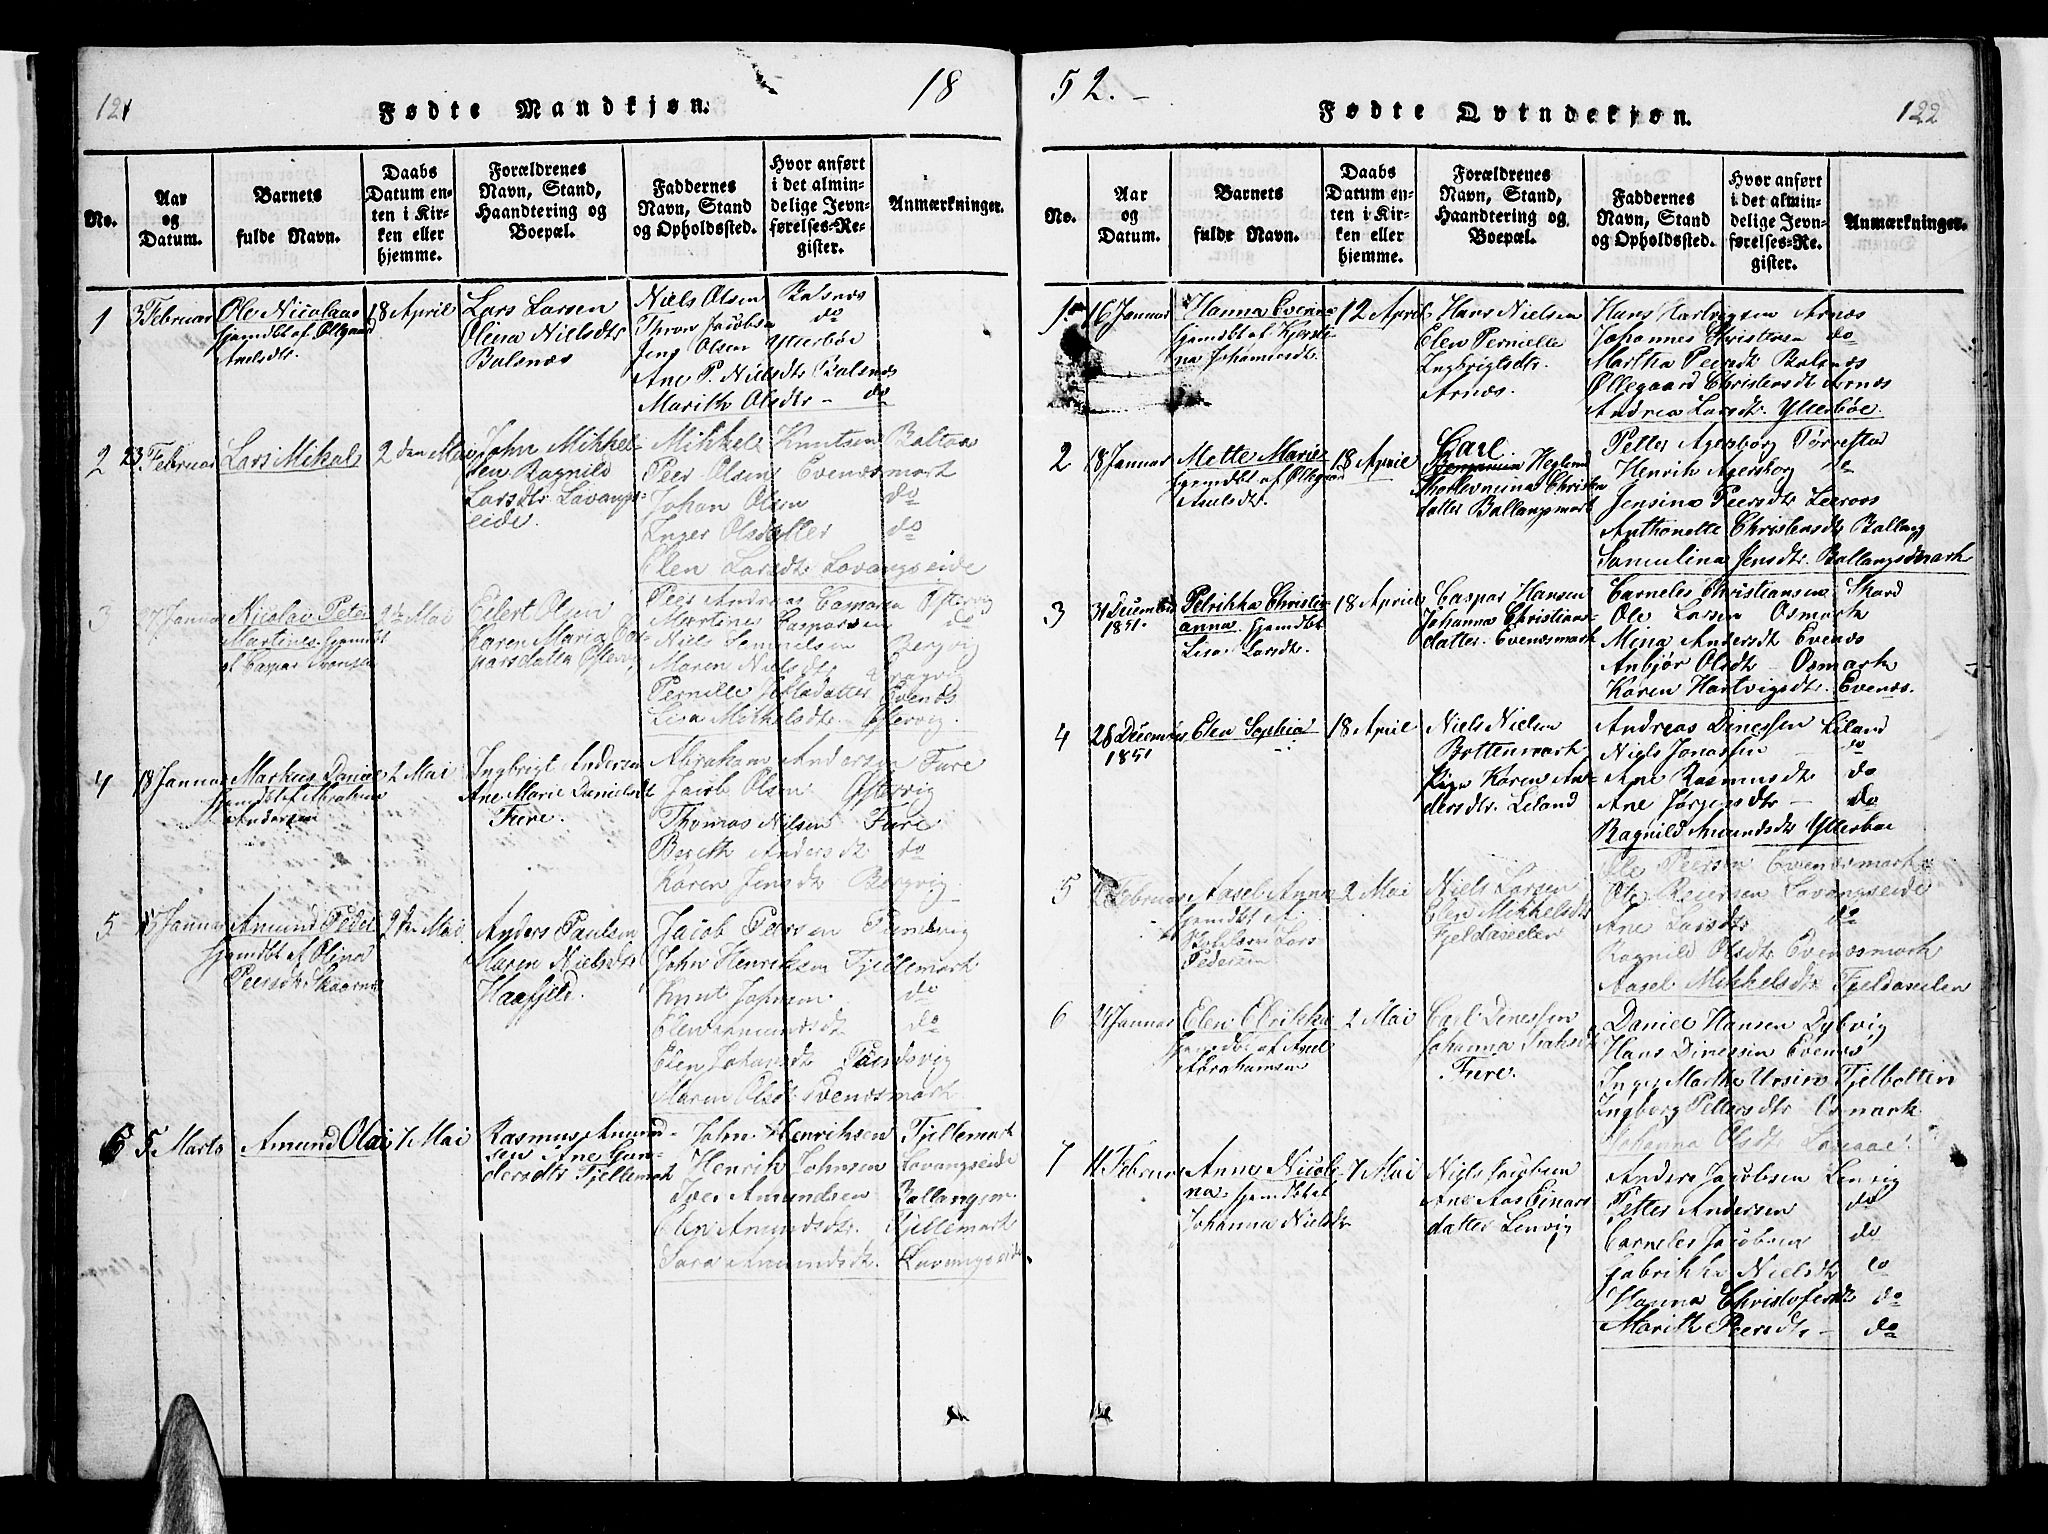 121
Fødte Mandkjøn.
18
No.
Aar
og
Datum.
Barnets
fulde Navn.
Daabs
Datum en-
ten i Kir-
ken eller
hjemme.
Forældrenes
Navn, Stand,
Haandtering og
Boepæl.
Faddernes
Navn, Stand
og Opholdssted.
Hvor anført
i det almin-
delige Jevn-
førelses-Re-
gister.
Anmærkninger.
1
3 Februar
Ole Nicolaas
hjemdbt af Ollgaard
Axelsdtr.
18 April
Lars Larsen
Olina Nielsdtr
Balsnæs
Niels Olsen Balsnæs
Thron Jacobsen do
Jens Olsen Ytterbøe
Ane P. Nielsdtr Balsnæs
Marith Olsdtr - do
2
23 Februar
Lars Mikal
2 den Mai
John Mikkel-
sen Ragnild
Larsdtr Lavangs-
eide.
Mikkel Knutsen
Peer Olsen Evenæsmark
Johan Olsen do
Inger Olsdatter do
Elen Larsdtr Lavangseide
3
Januar
Nicolav Peter
Martines hjemdbt
af Caspar
2 Mai
Eilert Olsen
Karen Maria Cas-
parsdatter Østervig
Peer Andreas Østervig
Martines Casparsen do
Niels Samuelsen Bergvig
Maren Nielsdtr
Pernille Evenæs
Lisa Mikkelsdtr Østervig.
4
18 Januar
Markus Daniel
hjemdbt af Abraham
Andersen
2 Mai
Ingbrigt Andersen
Ane Marie Danielsdt
Fure.
Abraham Andersen Fure
Jacob Olsen Østervig
Thomas Nilsen Fure
Bereth Andersdt do
Karen Jensdtr Bergvig
5
Januar
Amund Peder
hjemdbt af Olina
Peersdtr
2 den Mai
Anders Paulsen
Maren Nielsdtr
Haafjeld.
Jacob Persen
John Henriksen Fjellemark
Knut Johnsen do
Elen Amundsdtr do
Elen Johansdtr
Maren Olsdtr Evenæsmark
6
5 Marts
Amund Olai
7 Mai
Rasmus Amund-
sen Ane Gun-
dersdtr Fjellemark
John Henriksen Fjellemark
Henrik Johnsen Lavangseide
Iver Amundsen Ballangsm.
Elen Amundsdtr. Fjellemark
Sara Amundsdt. Lavangseide
52.-
Fødte Qvindekjøn.
122
No.
Aar
og
Datum.
Barnets
fulde Navn.
Daabs
Datum en-
ten i Kir-
ken eller
hjemme.
Forældrenes
Navn, Stand,
Haandtering og
Boepæl.
Faddernes
Navn, Stand
og Opholdssted.
Hvor anført
i det almin-
delige Jevn-
førelses-Re-
gister.
Anmærkninger.
1.
16 Januar
Hanna Evine
hjemdbt af Kjersti-
na Johannesdtr.
12 April
Hans Nielsen
Elen Pernille
Ingbrigtsdtr.
Arnæs.
Hans Hartvigsen Arnæs
Johannes Christensen do
Martha Peersdt Balsnæs
Øllegaard Christensdt Arnæs
Andrea Larsdt. Ytterbøe.
2
18 Januar
Mette Marie
hjemdbt af Øllegaard
Axelsdtr.
18 April
Carl
Heglund
Christen
datter Ballangsmark
Petter Agersborg Tørrestad
Henrik Agersborg do
Jensina Peersdtr Leeroos
Anthonette Christensdt Ballang
Samulina Jensdtr. Ballangsmark
3
31 December
1851.
Petrikka Christi-
anna. hjemdbt
Lisa Larsdtr.
18 April
Caspar Hansen
Johanna Christians-
datter. Evenæsmark
Carneles Christiansen Skard
Ole Larsen Osmark
Mina Andersdt Evenæs
Anbjør Olsdt - Osmark
Karen Hartvigsdt. Evenæs.
4
28 December
1851
Elen Sophia
18 April
Niels Nielsen
Bottenmark
Pige Karen An-
dersdtr. Leland
Andreas Dinessen Liland
Niels Jonassen - do
Ane Rasmusdt do
Ane Jørgensdtr - do
Ragnild Amundsdtr Ytterbøe
5
Februar
Aasel Anna
hjemdbt af
Lars
Pedersen
2 Mai
Niels Larsen
Elen Mikkelsdtr
Fjeldaseilen
Ole Peersen Evenæsmark
Ole Reiersen Lavangseide
Ane Larsdtr do
Ragnild Olsdt Evenæsmark
Aasel Mikkelsdtr Fjeldaseilen
6
Januar
Elen Olrikka
hjemdbt af Axel
Abrahamsen
2 Mai
Carl Dinessen
Johanna Isaksdt
Fure.
Daniel Hansen Dybvig
Hans Dinessen Evenæs
Inger Marthe Ursin Fjelbotten
Ingborg Pettersdtr Osmark
Johanna Olsdtr
7
11 Februar
Anne Nicoli-
na. hjemdbt af
Johanna Nielsdtr
7 Mai
Niels Jacobsen
Ane Aas Einars
datter Lenvig
Anders Jacobsen Lenvig
Petter Andersen do
Carneles Jacobsen do
Fabrikka Nielsdtr do
Hanna Christofersdt do
Marith Peersdtr - do